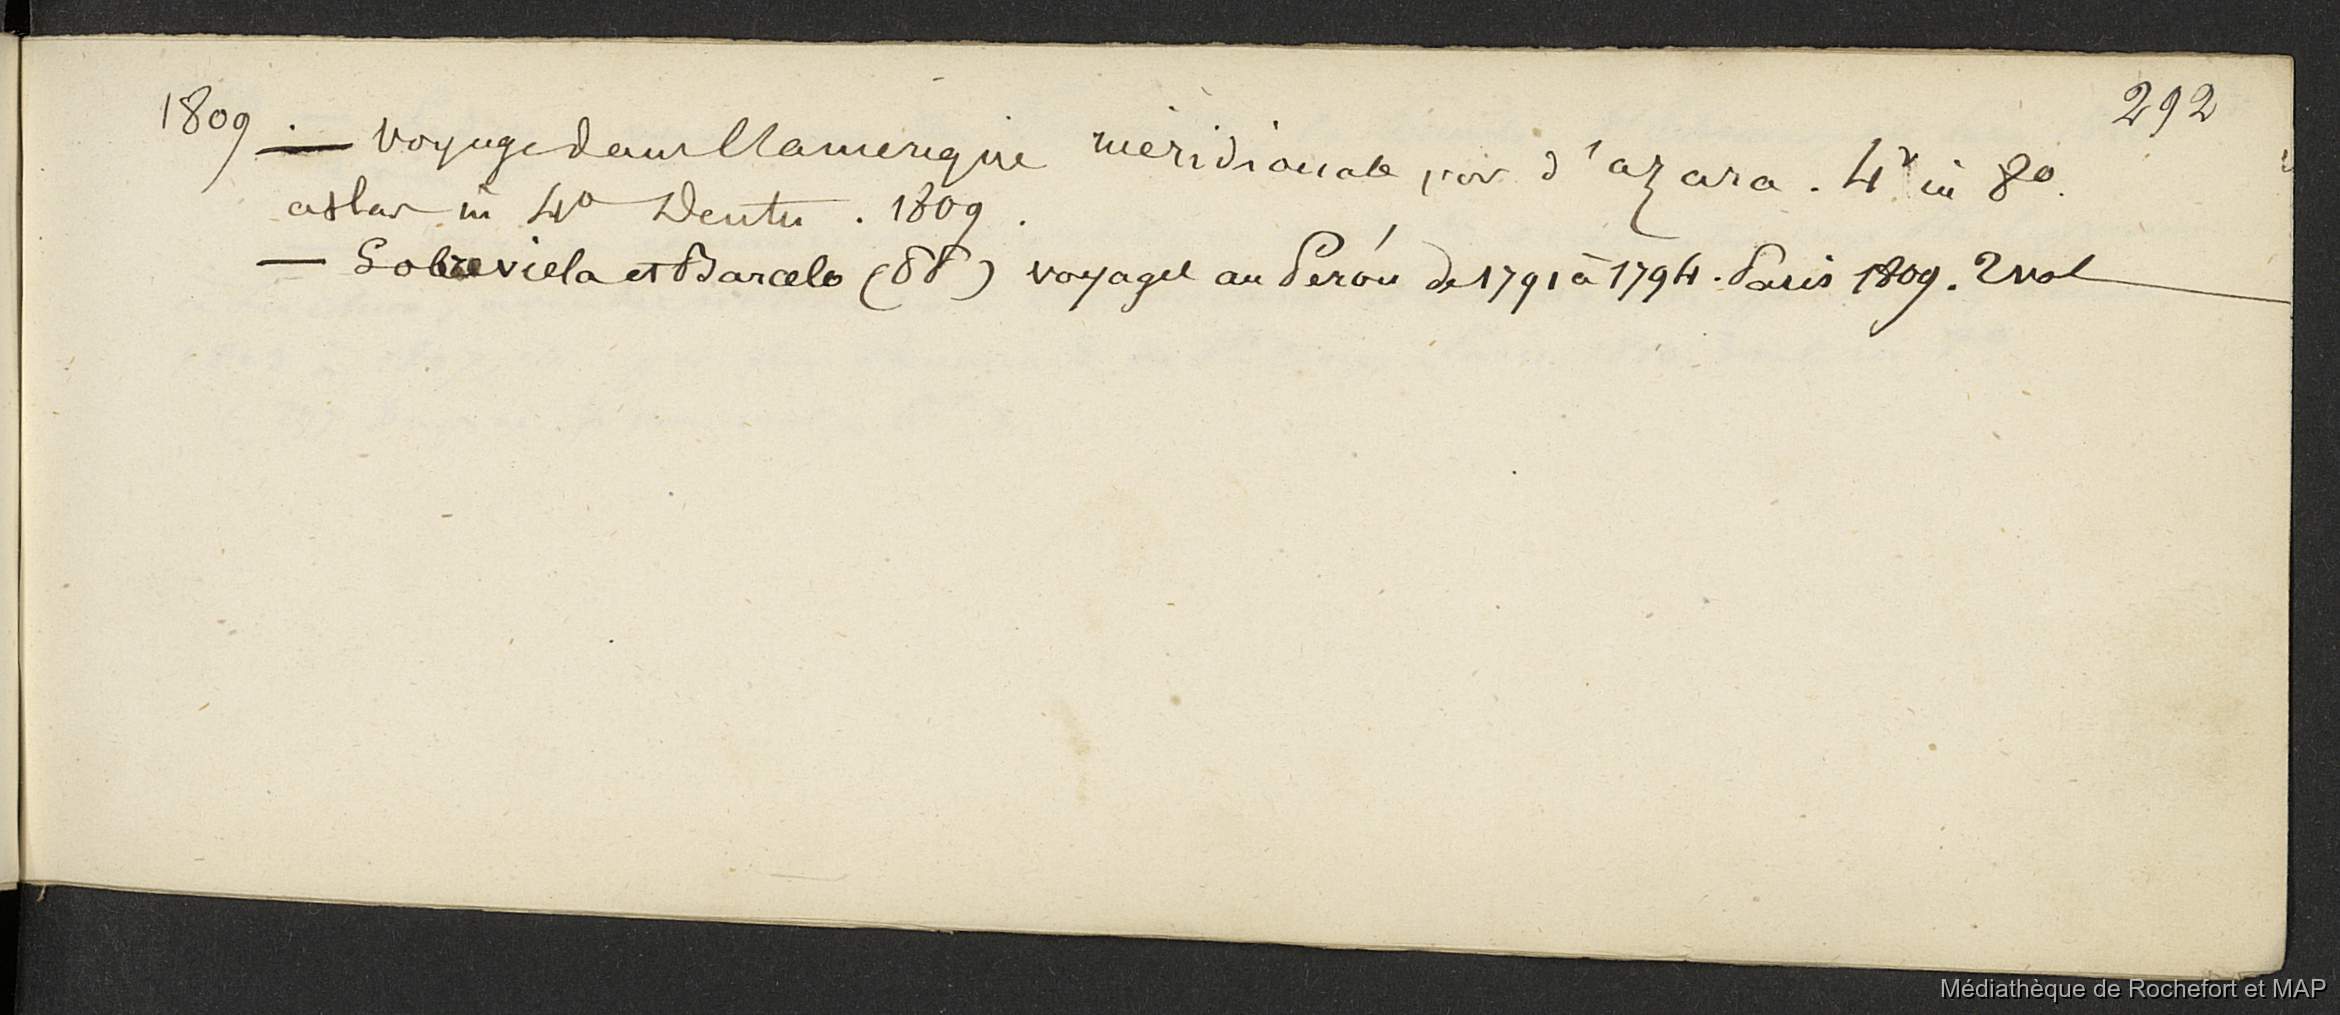 292
1809 — Voyage dans l'amerique méridionale par d'azara . 4v in 8o.
atlas in 4o Dentu . 1809 .
— Sobreviela et Barcelo (PP) voyages au Pérou de 1791 à 1794 . Paris 1809 . 2 vol
Médiathèque de Rochefort et MAP